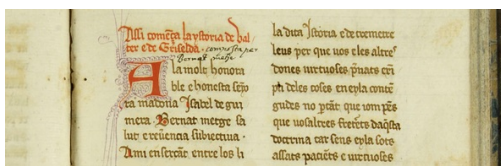 Assi comẽça la ystoria de val
ter e de Griselda. composta per
Bernat metge
A la molt honora
ble e honesta seyo
ra madona Isabel de gui
mera. Bernat metge sa
lut e reuerencia subiectiua.
A mi ensercãt entre los li
la dita Istoria e de trametre
leus per que vos e les altres
dones virtuoses prẽnats exẽ
pli deles coses en ella contẽ
gudes no pctãt que jom pẽs
que vosaltres fretets daq̃sta
doctrina car sens ella sots
assats paciẽts e virtuoses